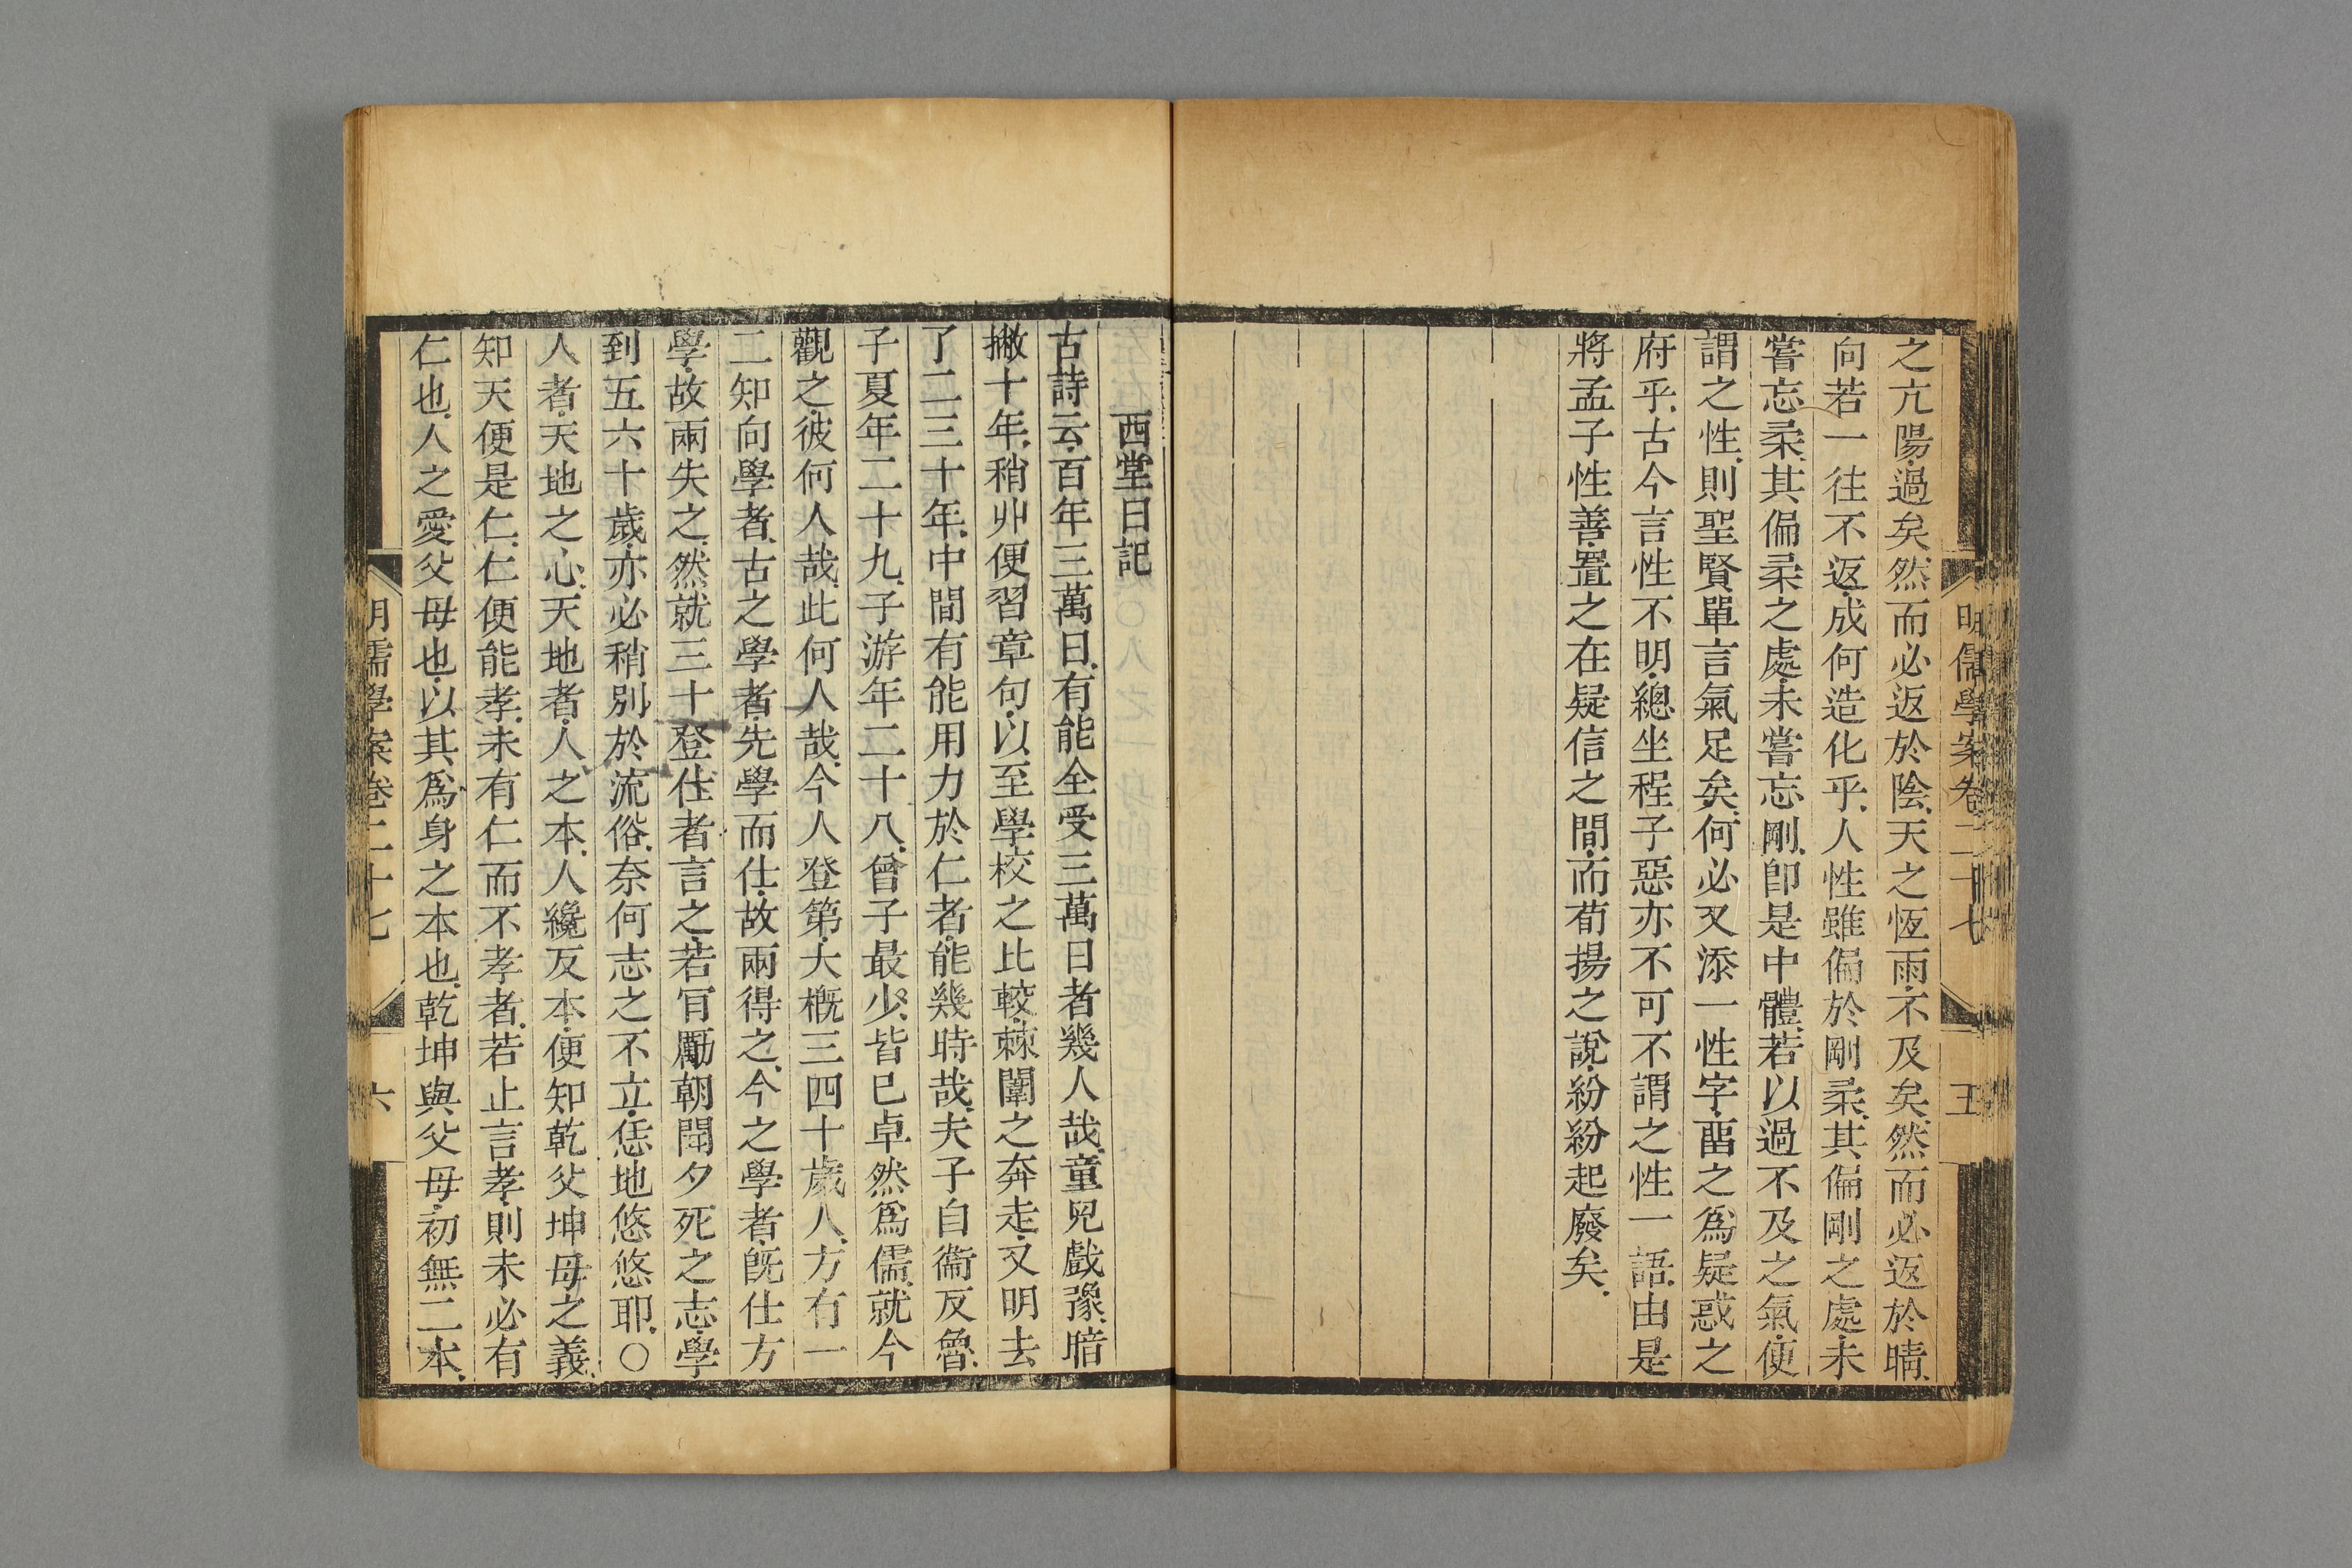 明儒學案卷二十七
五
之亢陽過矣然而必返於陰天之恆雨不及矣然而必返於晴
向若一往不返成何造化乎人性雖偏於剛柔其偏剛之處未
嘗忘柔其偏柔之處未嘗忘剛卽是中體若以過不及之氣便
謂之性則聖賢單言氣足矣何必又添一性字畱之爲疑惑之
府乎古今言性不明總坐程子惡亦不可不謂之性一語由是
將孟子性善置之在疑信之間而荀揚之說紛紛起廢矣
西堂日記
古詩云百年三萬日有能全受三萬日者幾人哉童兒戲豫暗
撇十年稍丱便習章句以至學校之比較棘闈之奔走又明去
了二三十年中間有能用力於仁者能幾時哉夫子自衞反魯
子夏年二十九子游年二十八曾子最少皆已卓然爲儒就今
觀之彼何人哉此何人哉今人登第大槪三四十歲人方有一
二知向學者古之學者先學而仕故兩得之今之學者旣仕方
學故兩失之然就三十登仕者言之若肎勵朝聞夕死之志學
到五六十歲亦必稍別於流俗奈何志之不立恁地悠悠耶〇
人者天地之心天地者人之本人纔反本便知乾父坤母之義
知天便是仁仁便能孝未有仁而不孝者若止言孝則未必有
仁也人之愛父母也以其爲身之本也乾坤與父母初無二本
明儒學案卷二十七
六